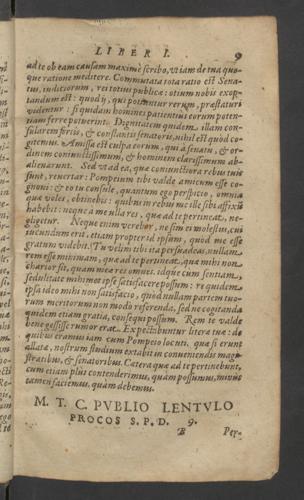 LIBER I. 9
ad te ob eam causam maximè scribo, vt iam de tua quo-
que ratione meditere. Commutata tota ratio est Sena-
tus, iudiciorum, rei totius publicæ: otium nobis exop-
tandum est: quod ij, qui potiuntur rerum, præstaturi
videntur: si quidam homines patientius eorum poten-
tiam ferre potuerint. Dignitatem quidem illam con-
sularem fortis, & constantis senatoris, nihil est quòd co-
gitemus. Amissa est culpa eorum, qui à senatu, & or-
dinem coniunctissimum, & hominem clarissimum ab-
alienarunt. Sed vt ad ea, quæ coniunctiora rebus tuis
sunt, reuertar: Pompeium tibi valde amicum esse co-
gnoui: & eo tu consule, quantum ego perspicio, omnia
quæ voles, obtinebis: quibus in rebus me ille sibi affixũ
habebit: neque à me ulla res, quæ ad te pertineat, ne-
gligetur. Neque enim verebor, ne sim ei molestus, cui
iucundum erit, etiam propter id ipsum, quòd me esse
gratum videbit. Tu velim tibi ita persuadeas, nullam
rem esse minimam, quæ ad te pertineat, quæ mihi non
charior sit, quàm meæ res omnes. idque cum sentiam,
sedulitate mihimet ipse satisfacere possum: re quidem
ipsa ideo mihi non satisfacio, quòd nullam partem tuo-
rum meritorum non modo referenda, sed ne cogitanda
quidem etiam gratia, consequi possum. Rem te valde
bene gessisse rumor erat. Expectabuntur literæ tuæ: de
quibus eramus iam cum Pompeio locuti. quæ si erunt
allatæ, nostrum studium extabit in conueniendis magi-
stratibus, & senatoribus. Cætera quæ ad te pertinebunt,
cum etiam plus contenderimus, quàm possumus, minus
tamen faciemus, quàm debemus.
M. T. C. PVBLIO LENTVLO
PROCOS S. P. D. 9.
B Per-